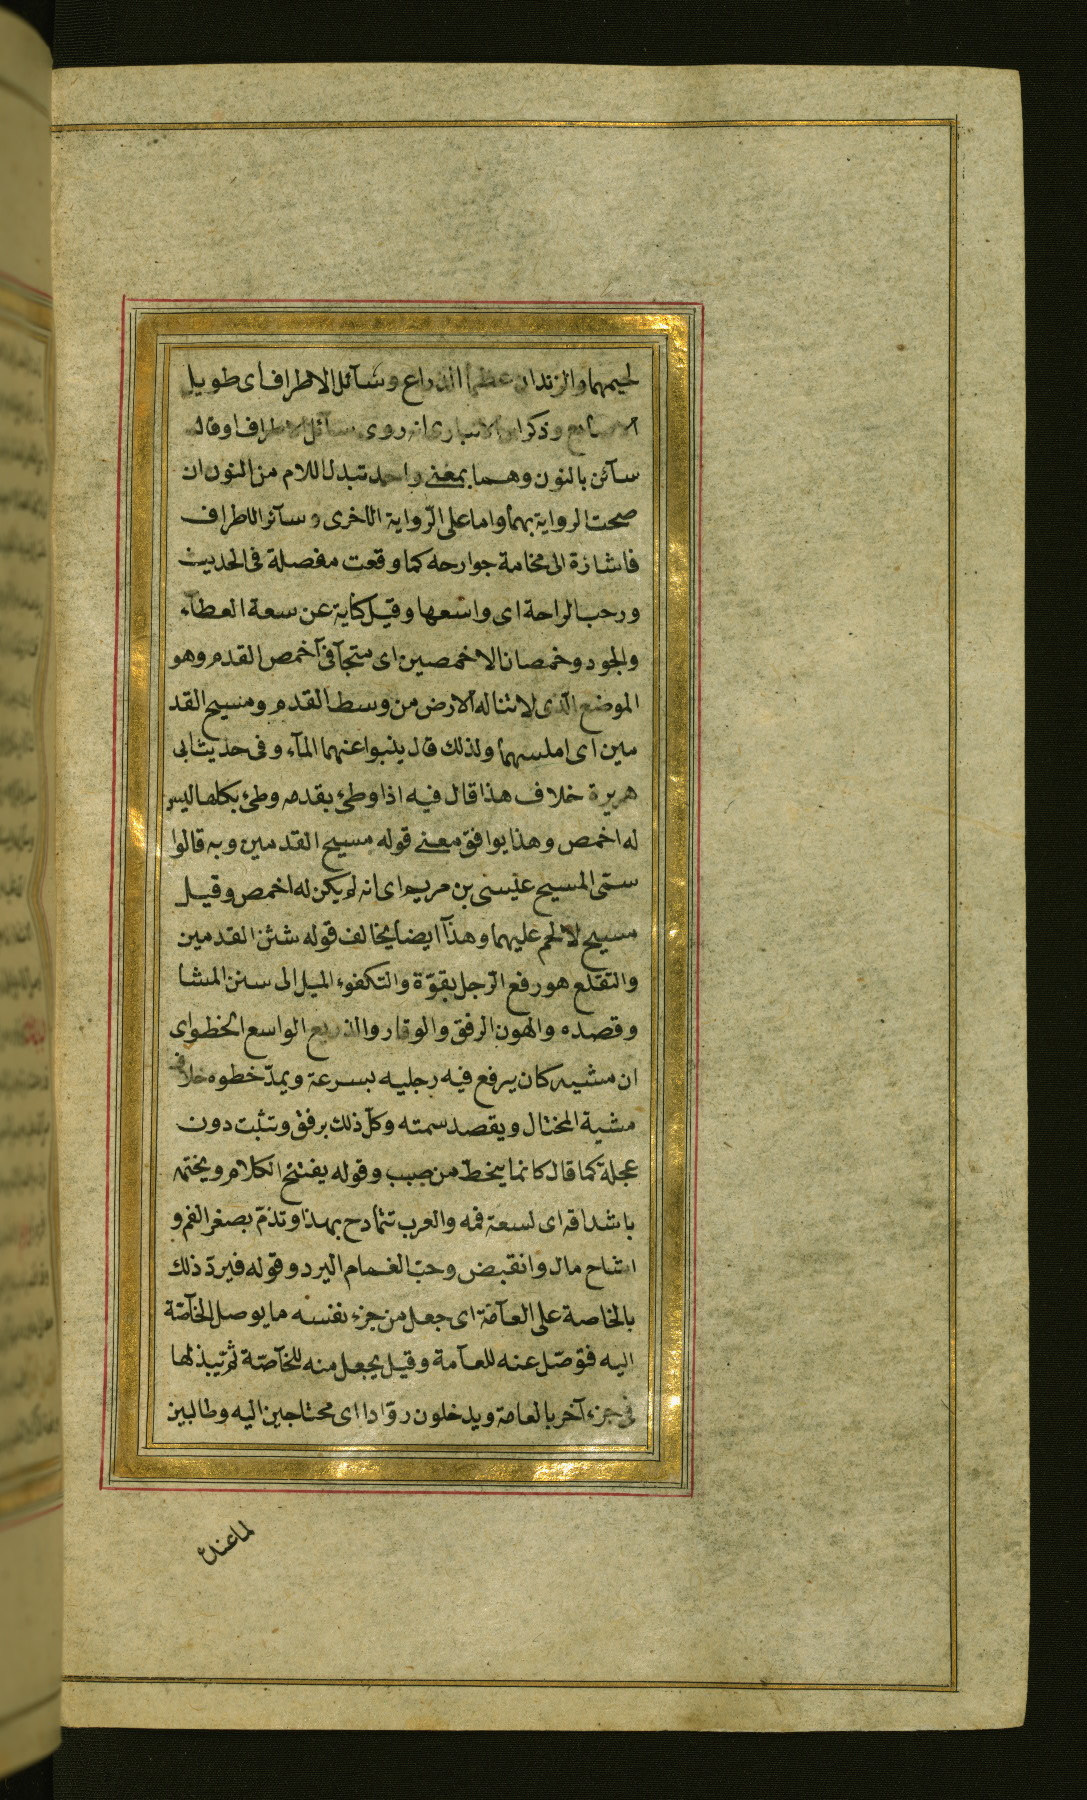 لحيمهما والزندان عظما الذراع وسآئل الاطراف اى طويل
الاصابع وذكر ابن الانبارى انه روى سآئل الاطراف او قال
سآئن بالنون وهما بمعنى واحد تبدل اللام من النون ان
صحت الرواية بهما واما على الرّواية الاخرى وسآئر الاطراف
فاشارة الى فخامة جوارحه كما وقعت مفصلة فى الحديث
ورحب الراحة اى واسعها وقيل كناية عن سعة العطآء
والجود وخمصان الاخمصين اى متجآفى آخمص القدم وهو
الموضع الّذى لا تناله الارض من وسط القدم ومسيح القد
مين اى املسهما ولذلك قال ينبوا عنهما المآء وفى حديث ابى
هريرة خلاف هذا قال فيه اذا وطئ بقدمه وطئ بكلها ليس
له اخمص وهذا يوافق معنى قوله مسيح القدمين وبه قالوا
سمّى المسيح عيسى بن مريم اى انه لم يكن له اخمص وقيل
مسيح لا لحم عليهما وهذا ايضا يخالف قوله شثن القدمين
والتقلع هو رفع الرّجل بقوّة والتكفوء الميل الى سنن المشا
وقصده والهون الرفق والوقار والذريع الواسع الخطو اى
ان مشيه كان يرفع فيه رجليه بسرعة ويمدّ خطوه خلاف
مشية المختال ويقصد سمته وكلّ ذلك برفق وتثبت دون
عجلة كما قال كانما يخطّ من صبب وقوله يفتتح الكلام ويختمه
باشداقه اى لسعة فمه والعرب تتمادح بهذا وتذمّ بصغر الفم و
اشاح مال وانقبض وحبّ الغمام البرد وقوله فيردّ ذلك
بالخاصة على العآمّة اى جعل من جزء نفسه ما يوصل الخآصّة
اليه فتوصّل عنه للعآمة وقيل يجعل منه للخآصّة ثم تبذلها
فى جزء آخر بالعامة ويدخلون روّادا اى محتاجين اليه وطالبين
لما عنده